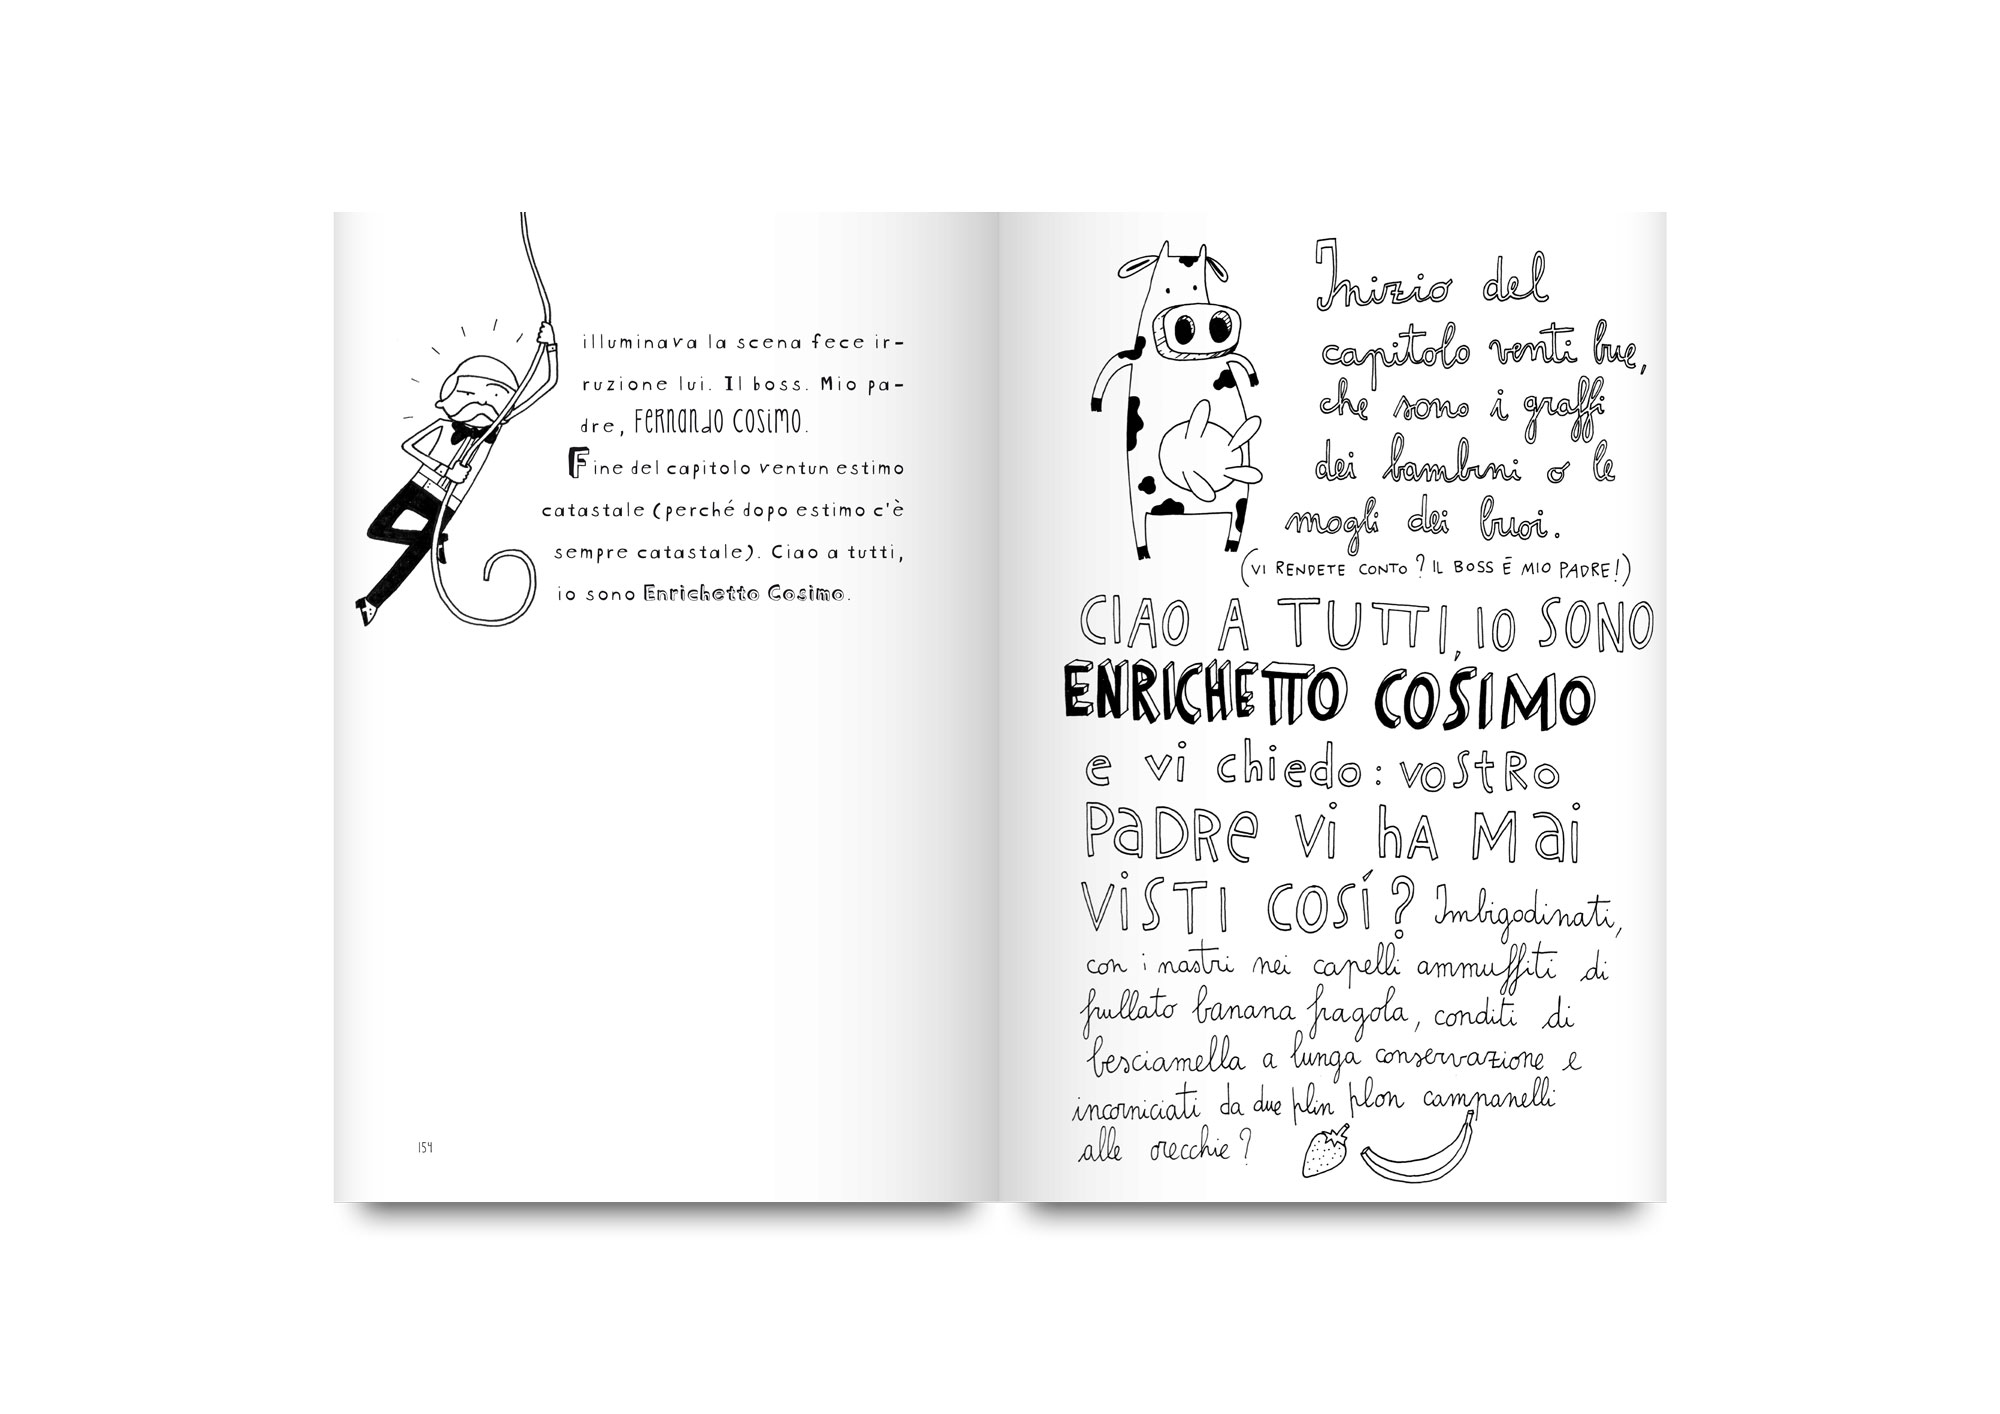 illuminava la scena fece ir-
ruzione lui. Il boss. Mio pa-
dre, Fernando Cosimo.
Fine del capitolo ventun estimo
catastale (perché dopo estimo c'è
sempre catastale). Ciao a tutti,
io sono Enrichetto Cosimo.
154
Inizio del
capitolo venti bue,
che sono i graffi
dei bambini o le
mogli dei buoi.
(VI RENDETE CONTO? IL BOSS È MIO PADRE!)
CIAO A TUTTI, IO SONO
ENRICHETTO COSIMO
e vi chiedo: vostro
PADRE Vi hA MAi
ViSTI COSÍ? Imbigodinati,
con i nastri nei capelli ammuffiti di
frullato banana fragola, conditi di
besciamella a lunga conservazione e
incorniciati da due plin plon campanelli
alle orecchie?